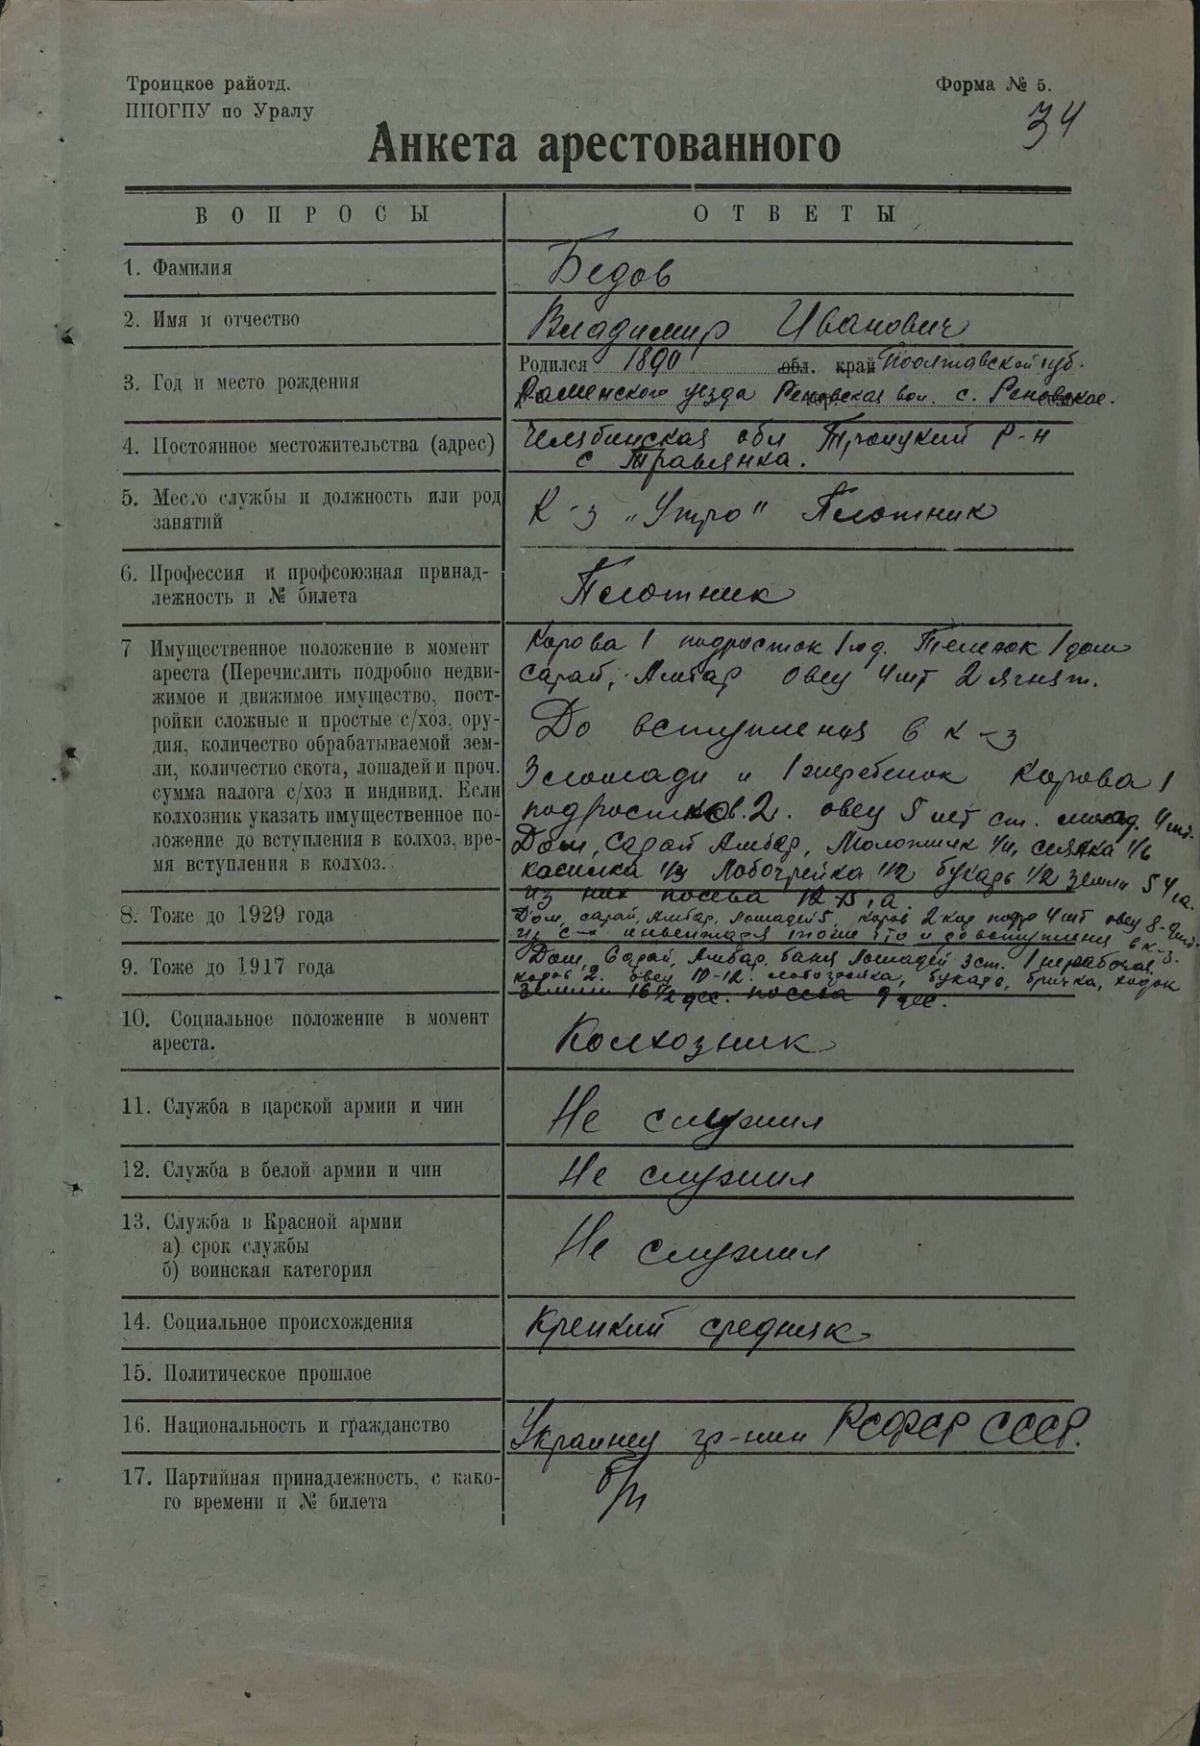 Троицкое райотд.
ППОГПУ по Уралу
Форма № 5.
34
Анкета арестованного
ВОПРОСЫ
ОТВЕТЫ
1. Фамилия
Бедов
2. Имя и отчество
Владимир Иванович
3. Год и место рождения
Родился 1890 обл. край Полтавской губ.
уезда вол. с.
4. Постоянное местожительства (адрес)
Челябинская обл Троицкий р-н
с Травлянка.
5. Место службы и должность или род
занятий
К-з „Утро" Плотник
6. Профессия и профсоюзная принад-
лежность и № билета
Плотник
7 Имущественное положение в момент
ареста (Перечислить подробно недви-
жимое и движимое имущество, пост-
ройки сложные и простые с/хоз. ору-
дия, количество обрабатываемой зем-
ли, количество скота, лошадей и проч.
сумма налога с/хоз и индивид. Если
колхозник указать имущественное по-
ложение до вступления в колхоз, вре-
мя вступления в колхоз.
Корова 1 подросток 1 год. Теленок 1 дом
сарай, Амбар овец 4 шт 2 ягнят.
До вступления в к-з
3 лошади и 1 жеребенок Корова 1
подростков. 2. овец 5 шт ст. молод. 4 шт.
Дом, Сарай Амбар, сеялка 1/6
касилка 1/3 Лобогрейка 1/2 букарь 1/2 земли
из них посева
8. Тоже до 1929 года
Дом, сарай, Амбар, лошадей 5. коров 2 4 шт овец
инвентаря тоже что и до вступления в к-з.
9. Тоже до 1917 года
Дом, Сарай, Амбар, баня Лошадей 3 ст. 1 нерабочая
коров 2. овец 10-12. лобогрейка, букарь, бричка, ходок
земли 16 1/2 дес. посева 9 дес.
10. Социальное положение в момент
ареста.
Колхозник
11. Служба в царской армии и чин
Не служил
12. Служба в белой армии и чин
Не служил
13. Служба в Красной армии
а) срок службы
б) воинская категория
Не служил
14. Социальное происхождения
Крепкий средняк
15. Политическое прошлое
16. Национальность и гражданство
Украинец гр-нин РСФСР СССР.
17. Партийная принадлежность, с како-
го времени и № билета
б/п